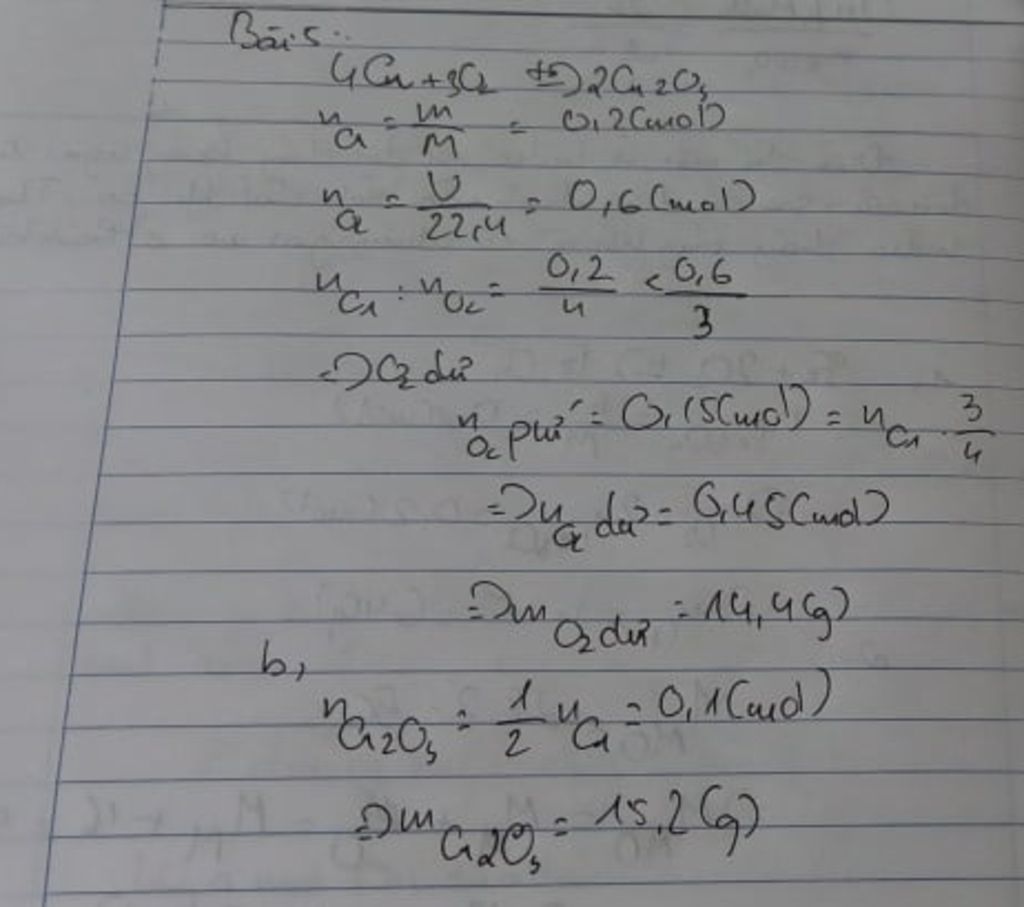 Bài 5:
4Cr + 3O2 t°→ 2Cr2O3
nCr = m/M = 0,2 (mol)
nO2 = V/22,4 = 0,6 (mol)
nCr : nO2 = 0,2/4 < 0,6/3
=> O2 dư
nO2 pứ = 0,15 (mol) = nCr . 3/4
=> nO2 dư = 0,45 (mol)
=> mO2 dư = 14,4 (g)
b,
nCr2O3 = 1/2 nCr = 0,1 (mol)
=> mCr2O3 = 15,2 (g)